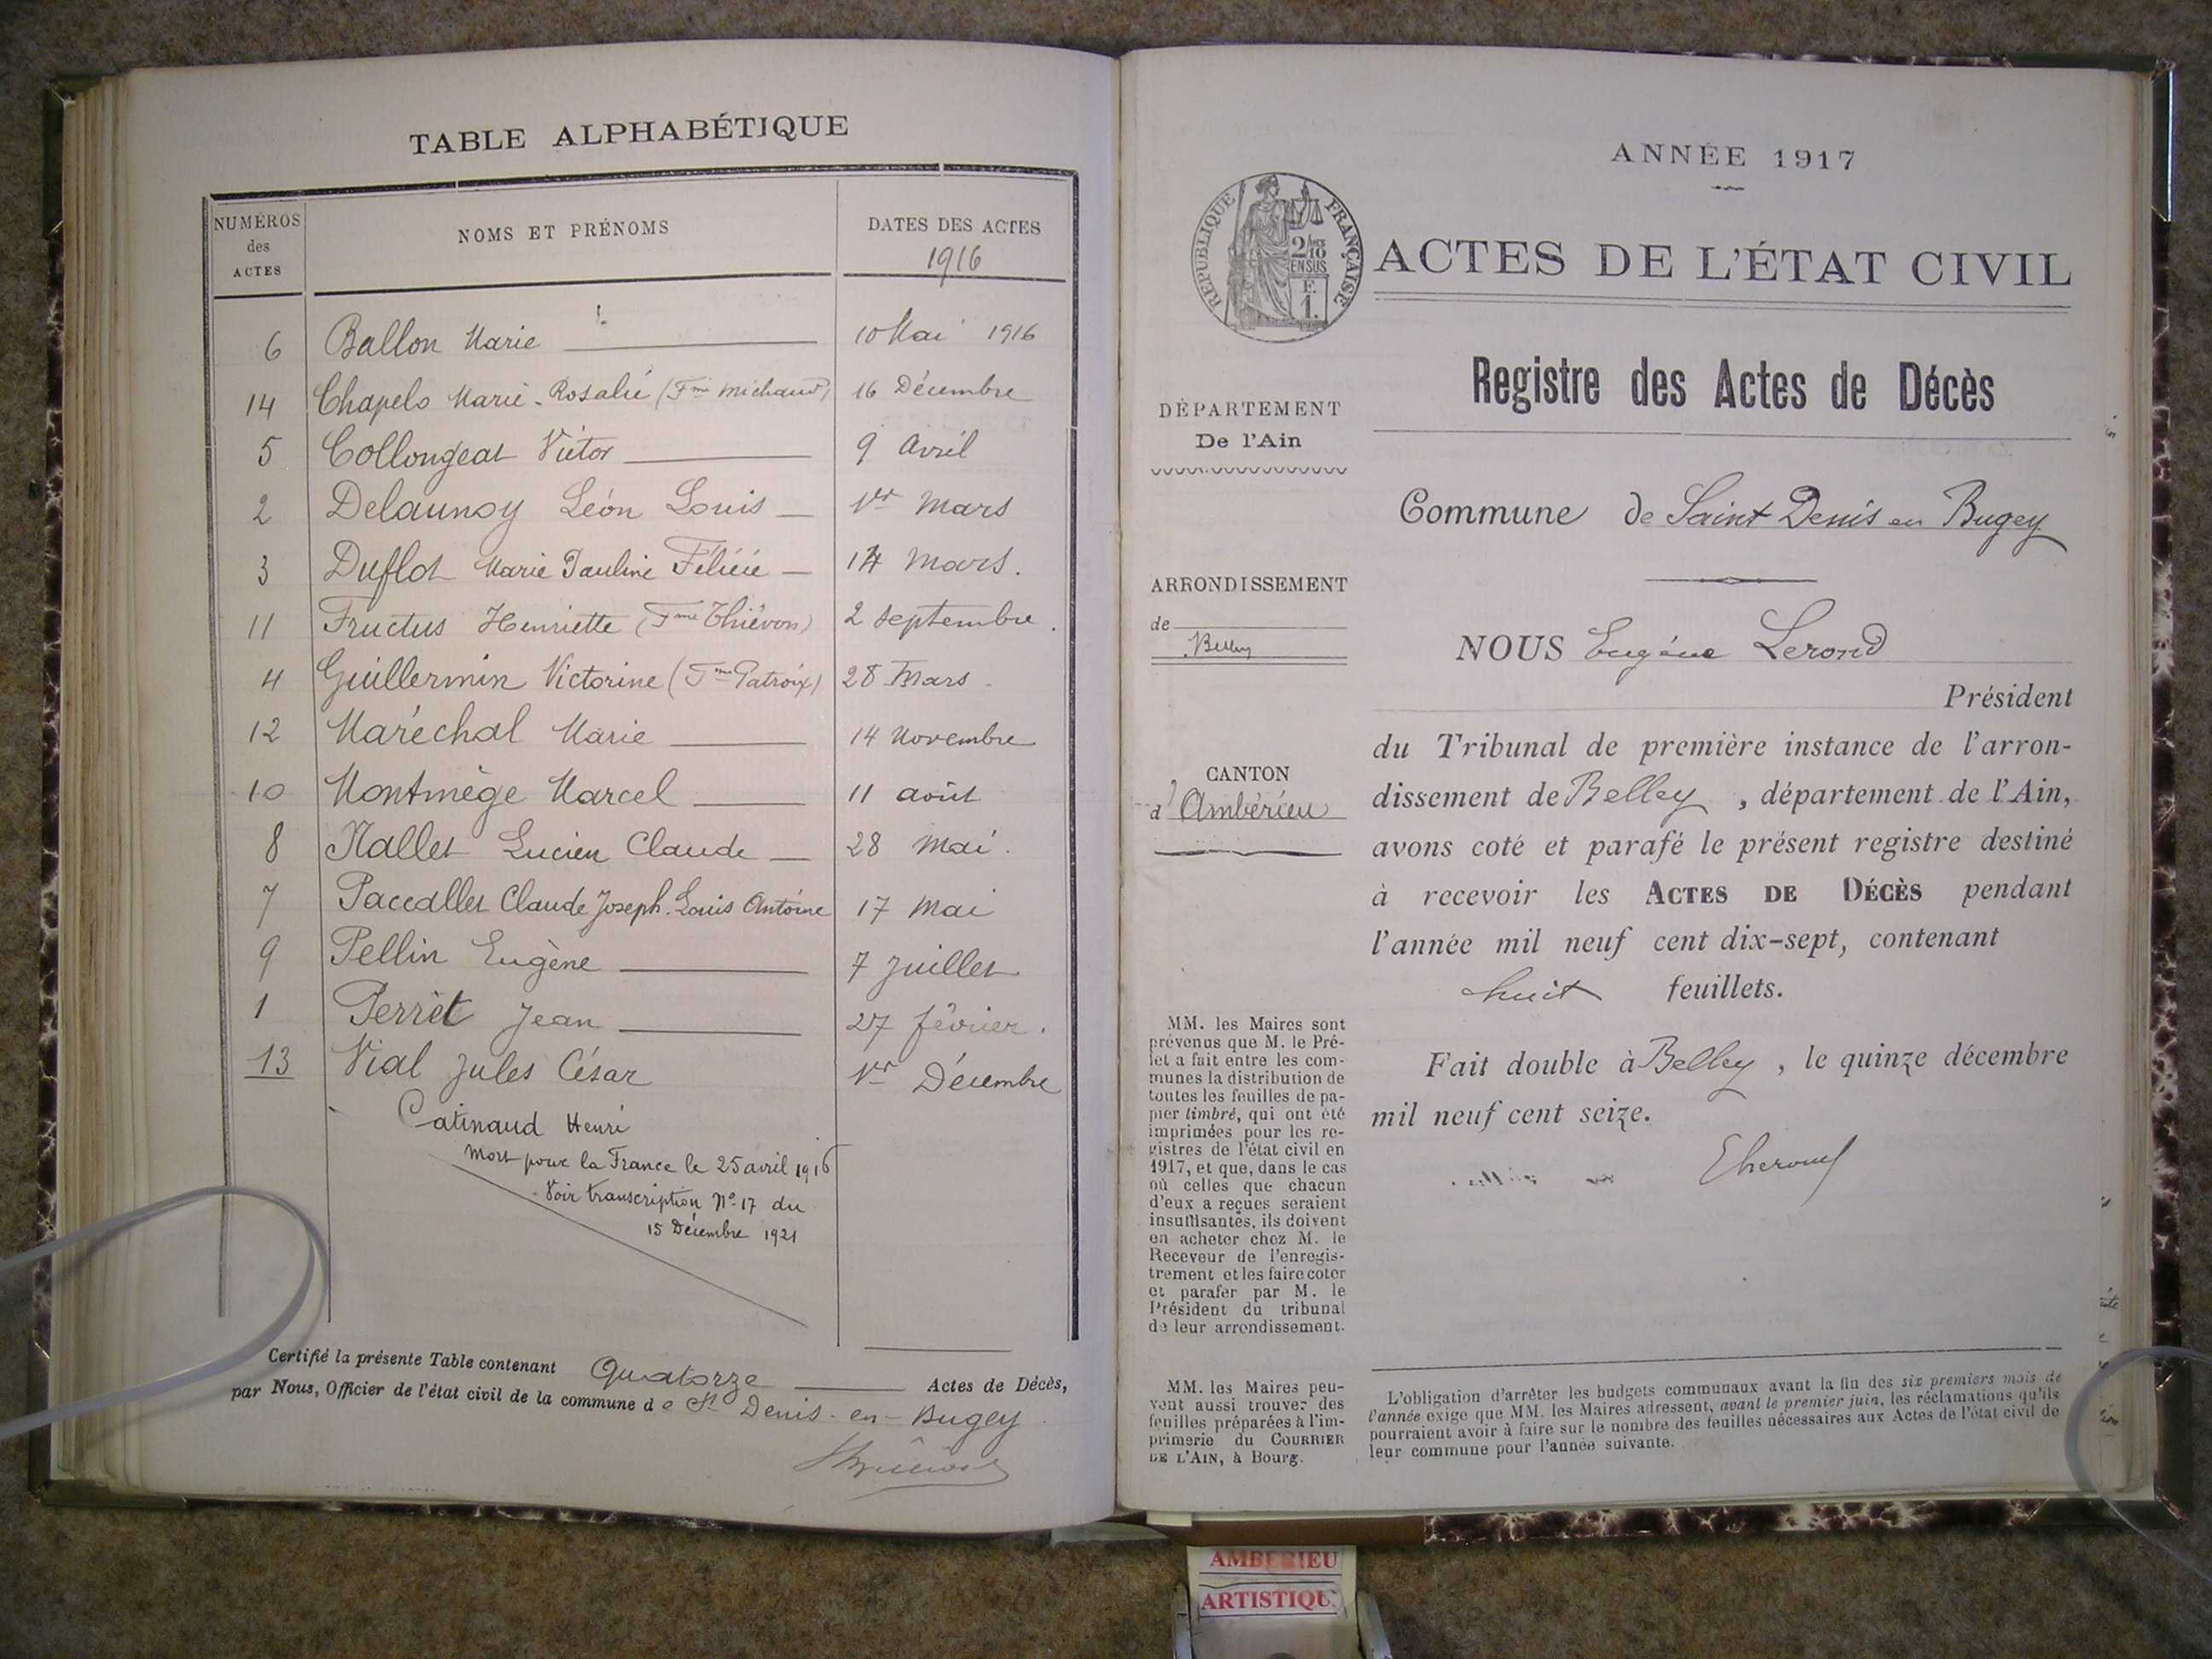 TABLE ALPHABÉTIQUE
NUMÉROS des ACTES NOMS ET PRÉNOMS DATES DES ACTES
1916
6 Ballon Marie 10 Mai 1916
14 Chapelo Marie-Rosalie (Fme Michaud) 16 Décembre
5 Collongeat Victor 9 avril
2 Delaunoy Léon Louis 1er mars
3 Duflot Marie Pauline Félicie 14 mars.
11 Fructus Henriette (Fme Thiévon) 2 septembre.
4 Guillermin Victorine (Fme Patroix) 28 Mars
12 Maréchal Marie 14 novembre
10 Montmège Marcel 11 août
8 Nallet Lucien Claude 28 mai.
7 Pacallet Claude Joseph Louis Antoine 17 mai
9 Pellin Eugène 7 juillet
1 Perret Jean 27 février.
13 Vial Jules César 1er Décembre
Catinaud Henri
Mort pour la France le 25 avril 1916
Voir transcription No 17 du
15 Décembre 1921
Certifié la présente Table contenant Quatorze Actes de Décès,
par Nous, Officier de l'état civil de la commune de St Denis-en-Bugey
ANNÉE 1917
RÉPUBLIQUE FRANÇAISE
2/10
EN SUS
F.
1.
ACTES DE L'ÉTAT CIVIL
Registre des Actes de Décès
DÉPARTEMENT
De l'Ain
Commune de Saint Denis en Bugey
ARRONDISSEMENT
de
Belley
NOUS Eugène Lerond
Président
du Tribunal de première instance de l'arron-
dissement de Belley, département de l'Ain,
avons coté et parafé le présent registre destiné
à recevoir les ACTES DE DÉCÈS pendant
l'année mil neuf cent dix-sept, contenant
huit feuillets.
Fait double à Belley, le quinze décembre
mil neuf cent seize.
CANTON
d'Ambérieu
MM. les Maires sont
prévenus que M. le Pré-
fet a fait entre les com-
munes la distribution de
toutes les feuilles de pa-
pier timbré, qui ont été
imprimées pour les re-
gistres de l'état civil en
1917, et que, dans le cas
où celles que chacun
d'eux a reçues seraient
insuffisantes, ils doivent
en acheter chez M. le
Receveur de l'enregis-
trement et les faire coter
et parafer par M. le
Président du tribunal
de leur arrondissement.
MM. les Maires peu-
vent aussi trouver des
feuilles préparées à l'im-
primerie du COURRIER
DE L'AIN, à Bourg.
L'obligation d'arrêter les budgets communaux avant la fin des six premiers mois de
l'année exige que MM. les Maires adressent, avant le premier juin, les réclamations qu'ils
pourraient avoir à faire sur le nombre des feuilles nécessaires aux Actes de l'état civil de
leur commune pour l'année suivante.
AMBERIEU
ARTISTIQU